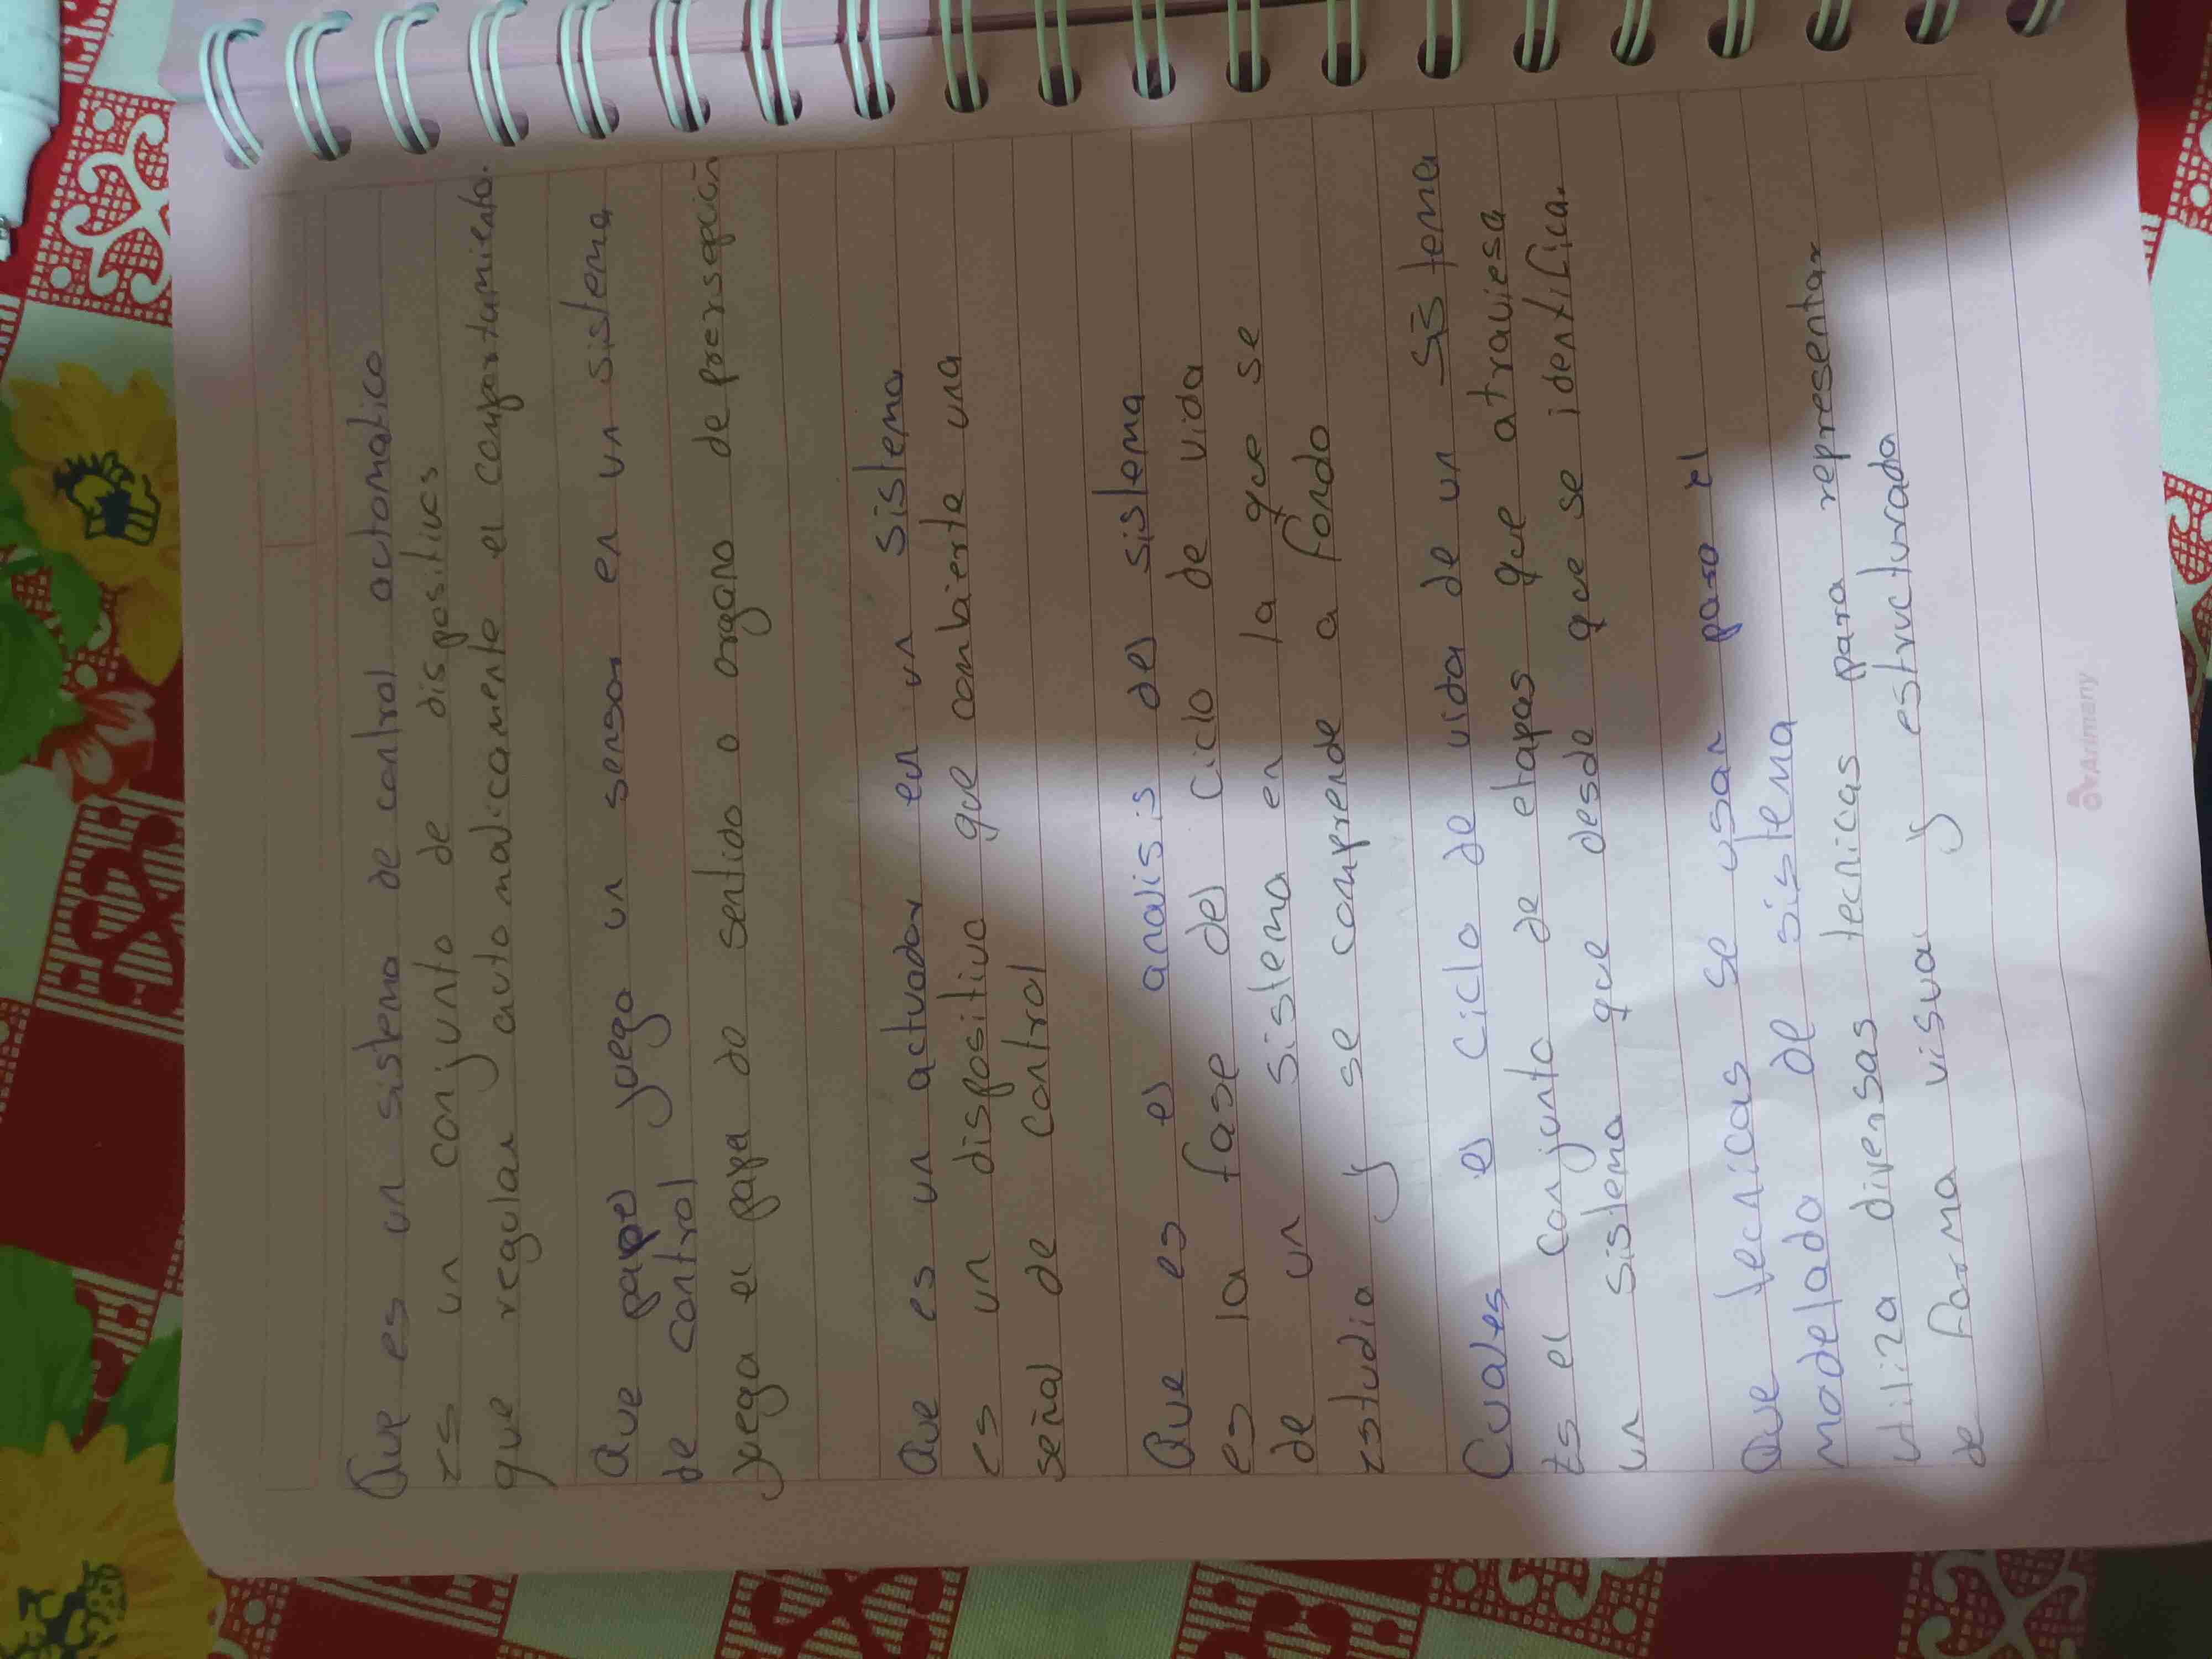 Que es un sistema de control automatico
es un conjunto de dispositivos
que regular automaticamente el comportamiento.
Que papel juega un sensor en un sistema
de control
juega el papel de sentido o organo de persepcion
Que es un actuador en un sistema
es un dispositivo que combierte una
señal de control
Que es el analisis del sistema
es la fase del ciclo de vida
de un sistema en la que se
estudia y se comprende a fondo
Cuales el ciclo de vida de un sistema
Es el conjunto de etapas que atraviesa
un sistema que desde que se identifica.
Que tecnicas se usan para el
modelado de sistema
utiliza diversas tecnicas para representar
de forma visual y estructurada
Arimany